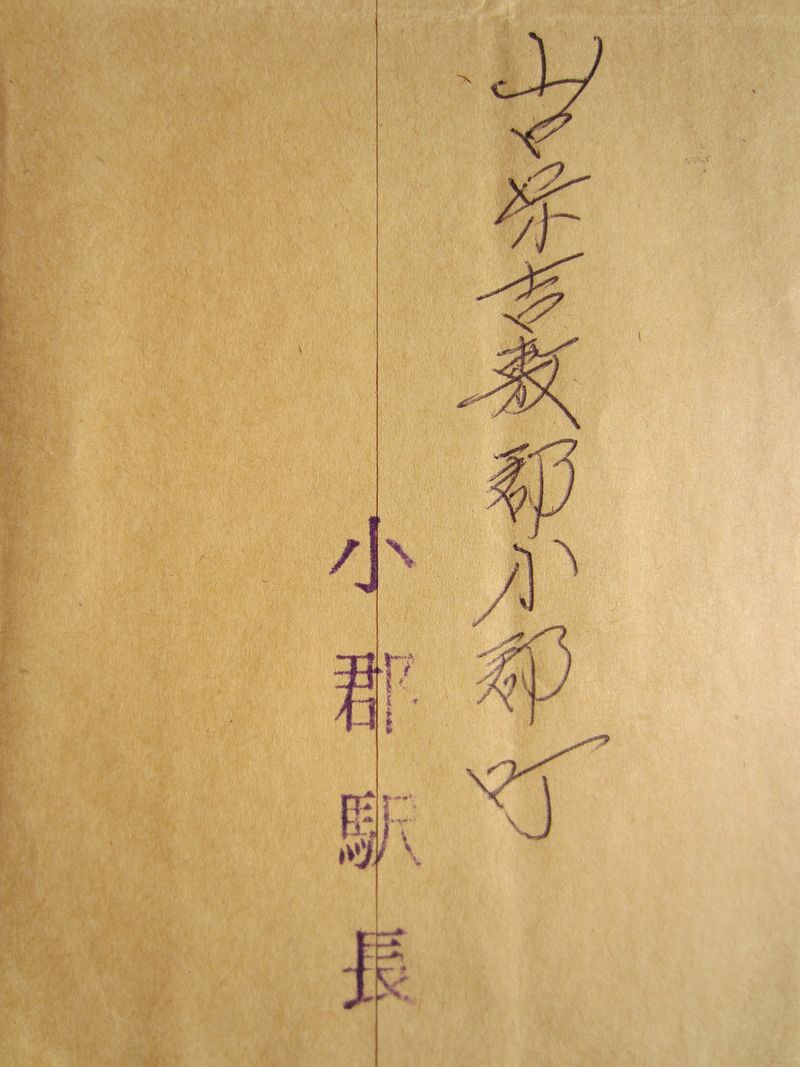 山口県吉敷郡小郡町
小郡駅長